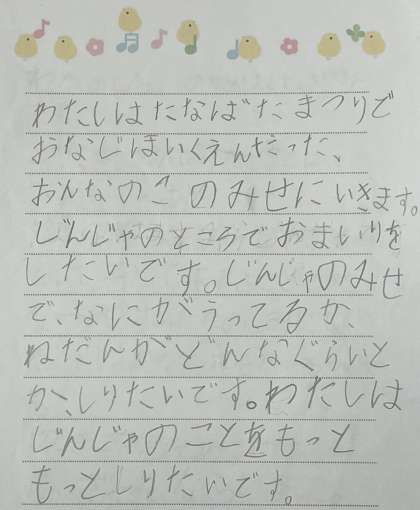 わたしはたなばたまつりで
おなじほいくえんだった、
おんなのこのみせにいきます。
じんじゃのところでおまいりを
したいです。じんじゃのみせ
で、なにがうってるか、
ねだんがどんなぐらいと
か、しりたいです。わたしは
じんじゃのことをもっと
もっとしりたいです。